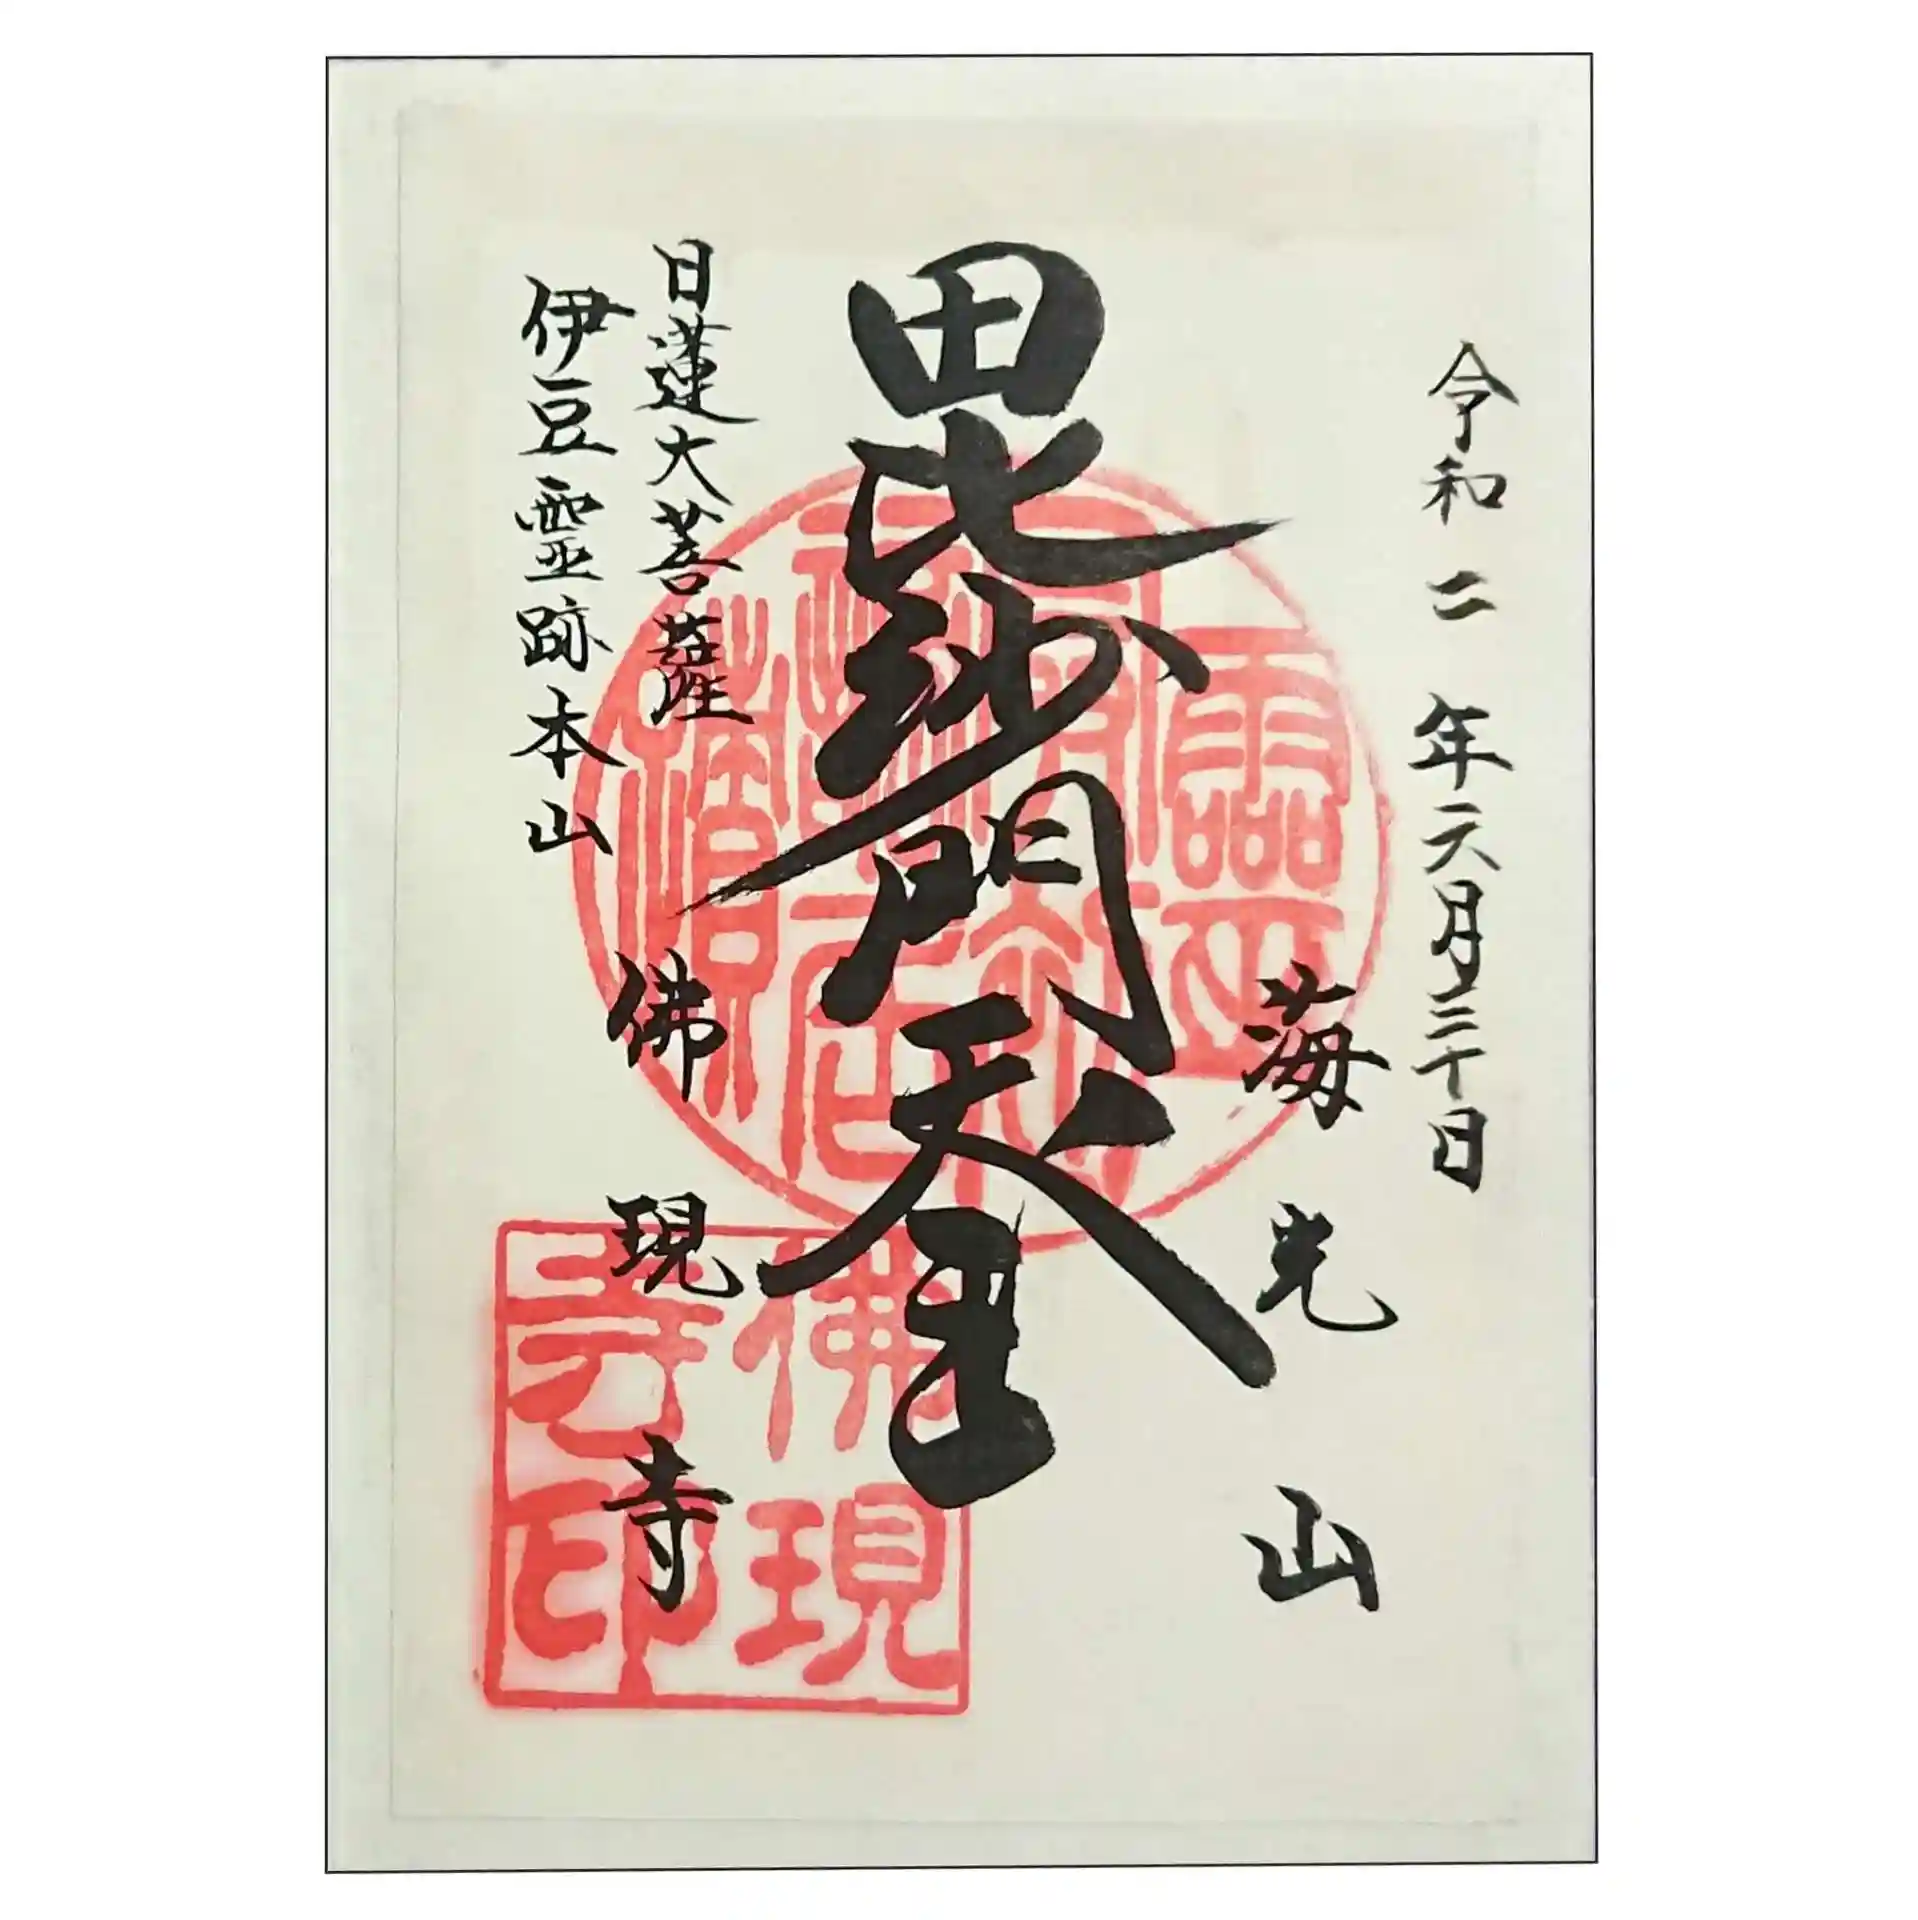 令和二年六月三十日
海光山
毘沙門天王
日蓮大菩薩
伊豆霊跡本山
佛現寺
佛現
寺印